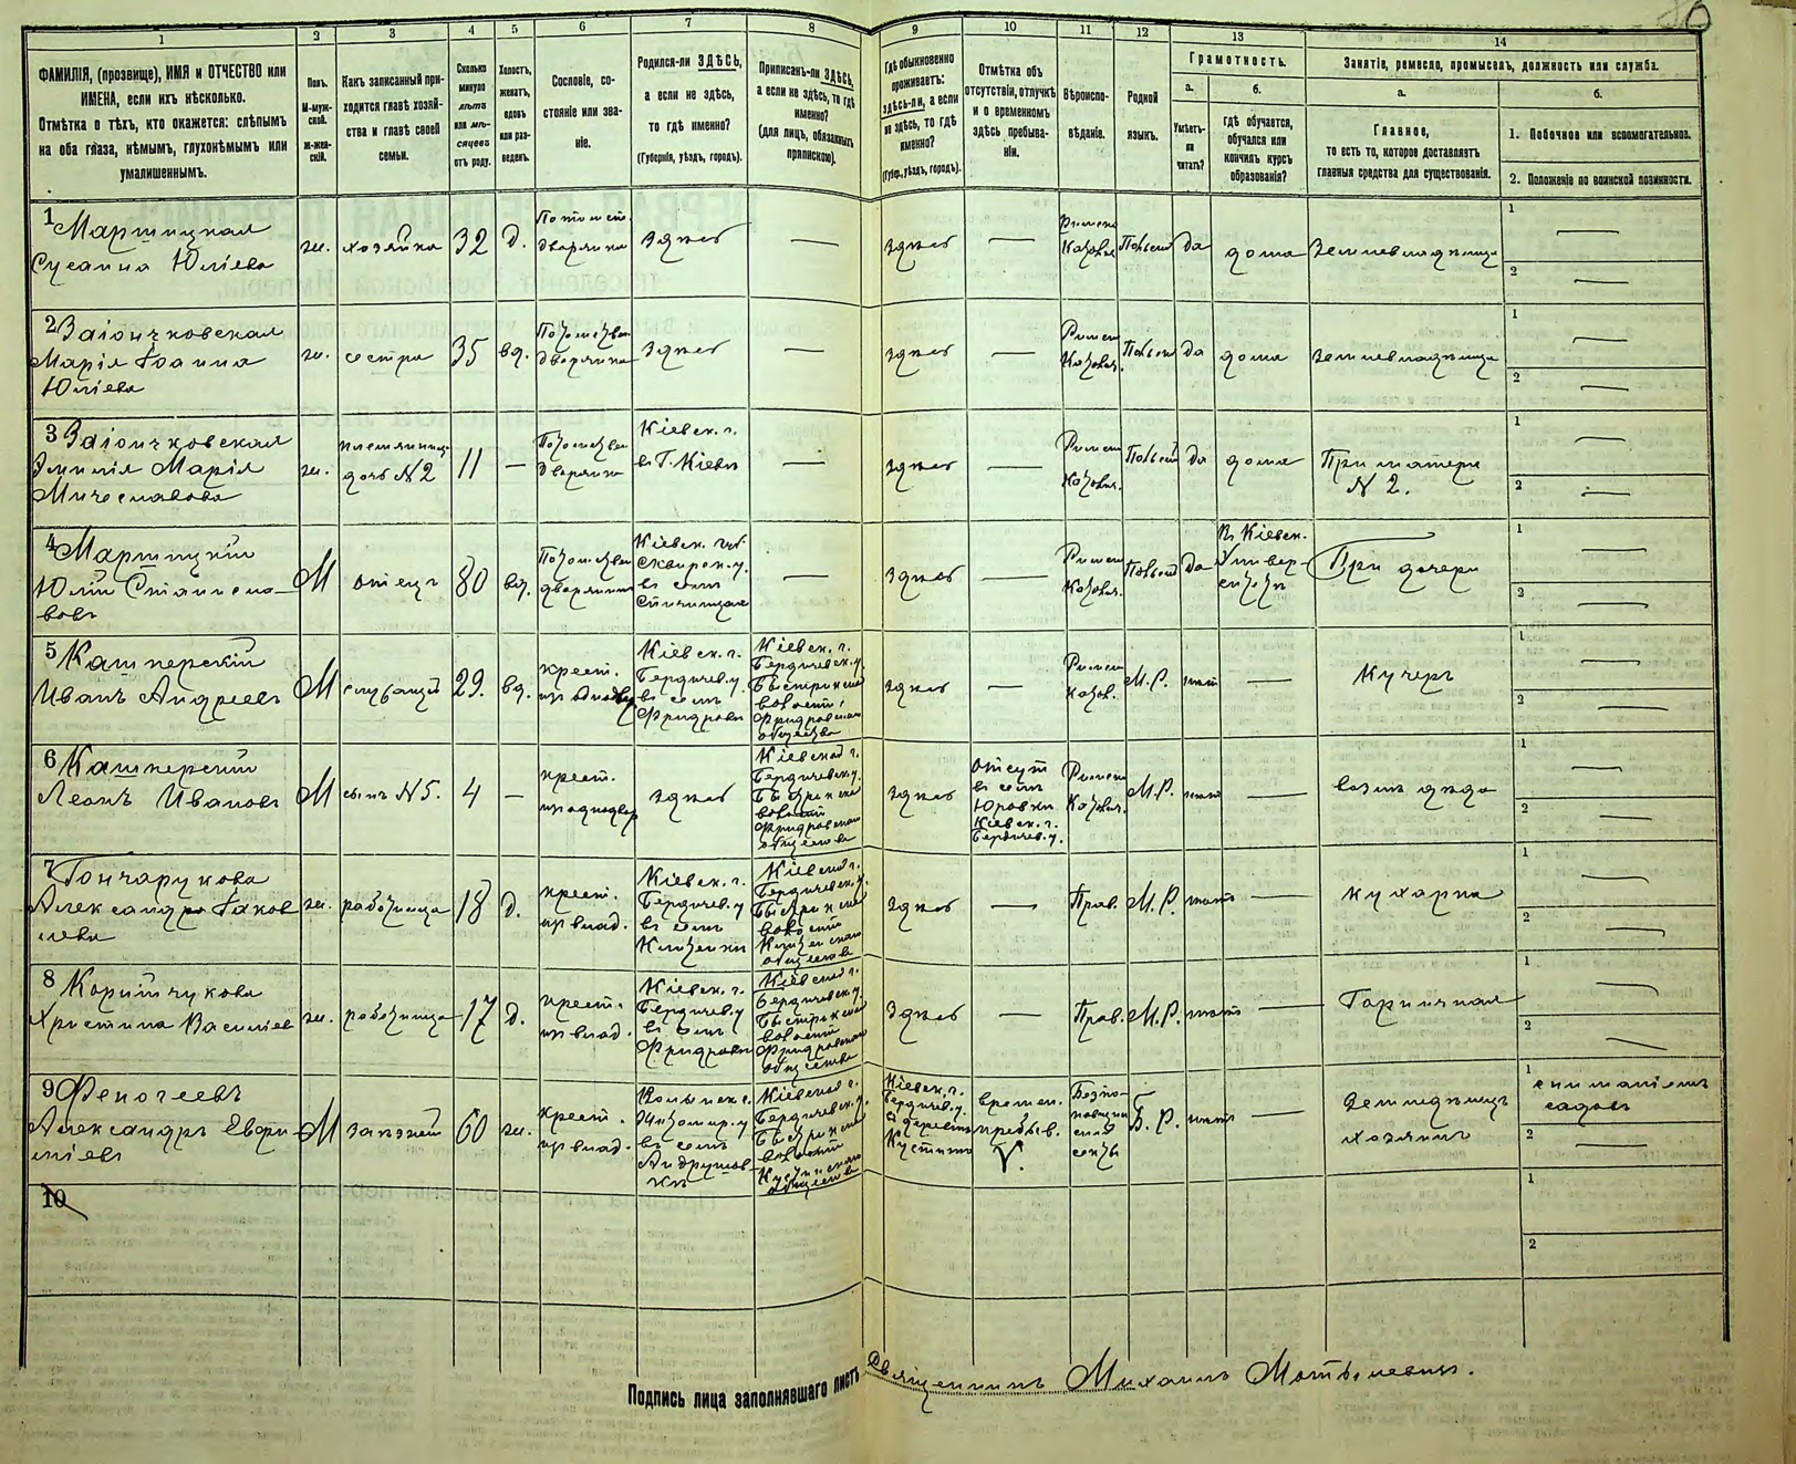 1
2
3
4
5
6
7
8
9
10
11
12
13
14
ФАМИЛІЯ, (прозвище), ИМЯ и ОТЧЕСТВО или
ИМЕНА, если ихъ нѣсколько.
Отмѣтка о тѣхъ, кто окажется: слѣпымъ
на оба глаза, нѣмымъ, глухонѣмымъ или
умалишеннымъ.
Полъ.
М-муж-
ской.
Ж-жен-
скій.
Какъ записанный при-
ходится главѣ хозяй-
ства и главѣ своей
семьи.
Сколько
минуло
лѣтъ
или мѣ-
сяцевъ
отъ роду.
Холостъ,
женатъ,
вдовъ
или раз-
веденъ.
Сословіе, со-
стояніе или зва-
ніе.
Родился-ли ЗДѢСЬ,
а если не здѣсь,
то гдѣ именно?
(Губернія, уѣздъ, городъ).
Приписанъ-ли ЗДѢСЬ,
а если не здѣсь, то гдѣ
именно?
(для лицъ, обязанныхъ
припискою).
Гдѣ обыкновенно
проживаетъ:
здѣсь-ли, а если
не здѣсь, то гдѣ
именно?
(Губер., уѣздъ, городъ).
Отмѣтка объ
отсутствіи, отлучкѣ
и о временномъ
здѣсь пребыва-
ніи.
Вѣроиспо-
вѣданіе.
Родной
языкъ.
Грамотность.
а.
Умѣетъ-
ли
читать?
б.
гдѣ обучается,
обучался или
кончилъ курсъ
образованія?
Занятіе, ремесло, промыселъ, должность или служба.
а.
Главное,
то есть то, которое доставляетъ
главныя средства для существованія.
б.
1. Побочное или вспомогательное.
2. Положеніе по воинской повинности.
1
Сусанна Юліева
ж.
хозяйка
32
д.
Потомст.
дворянка
здѣсь
—
здѣсь
—
Римско
Католич
Польск
да
дома
Землевладѣлица
1 —
2 —
2 Заіончковская
Марія Іоанна
Юліева
ж.
сестра
35
вд.
Потомствен
дворянка
здѣсь
—
здѣсь
—
Римско
Католич.
Польск
да
дома
землевладѣлица
1 —
2 —
3 Заіончковская
Эмилія Марія
Мичеславова
ж.
племянница
дочь №2
11
—
Потомствен
дворянка
Кіевск. г.
въ Г. Кіевѣ
—
здѣсь
—
Римско
Католич.
Польск
да
дома
При матери
№ 2.
1 —
2 —
4
Юлій Станисла-
вовъ
М
отецъ
80
вд.
Потомствен
дворянинъ
Кіевск. губ.
Сквирск. у.
въ селѣ
—
здѣсь
—
Римско
Католич.
Польск
да
Въ Кіевск.
Универ-
ситетѣ
При дочери
1 —
2 —
5 Кашперскій
Иванъ Андреевъ
М
служащій
29.
вд.
крест.
изъ однодвор
Кіевск. г.
Бердичев. у.
въ селѣ
Фридровѣ
Кіевск. г.
Бердичевск. у.
Быстрикской
волости
Фридровскаго
общества
здѣсь
—
Римско
католич.
М. Р.
нѣтъ
—
Кучеръ
1 —
2 —
6 Кашперскій
Леонъ Ивановъ
М
сынъ №5.
4
—
крест.
изъ однодвор
здѣсь
Кіевской г.
Бердичевск. у.
Быстрикской
волости
Фридровскаго
общества
здѣсь
отсут
въ селѣ
Юровки
Кіевск. г.
Бердичев. у.
Римско
Католич.
М. Р.
нѣтъ
—
возлѣ дѣда
1 —
2 —
7 Гончарукова
Александра Яковлева
ж.
работница
18
д.
крест.
изъ влад.
Кіевск. г.
Бердичев. у
въ селѣ
Кіевской г.
Бердичевск. у.
Быстрикской
волости
общества
здѣсь
—
Прав.
М. Р.
нѣтъ
—
кухарка
1 —
2 —
8
Христина Василіев
ж.
работница
17
д.
крест.
изъ влад.
Кіевск. г.
Бердичев. у
въ селѣ
Фридровѣ
Кіевской г.
Бердичевск. у.
Быстрикской
волости
Фридровскаго
общества
Здѣсь
—
Прав.
М. Р.
нѣтъ
—
Горничная
1 —
2 —
9
Александръ
М
60
ж.
крест.
изъ влад.
Волынск. г.
Житомир. у
въ селѣ
Андрушов-
кѣ
Кіевской г.
Бердичевск. у.
Быстрикской
волости
общества
Кіевск. г.
Бердичев. у.
времен.
пребыв.
V.
В. Р.
нѣтъ
—
Земледѣлецъ
хозяинъ
1 сниманіемъ
садовъ
2 —
10
1
2
Подпись лица заполнявшаго листъ
Священникъ Михаилъ